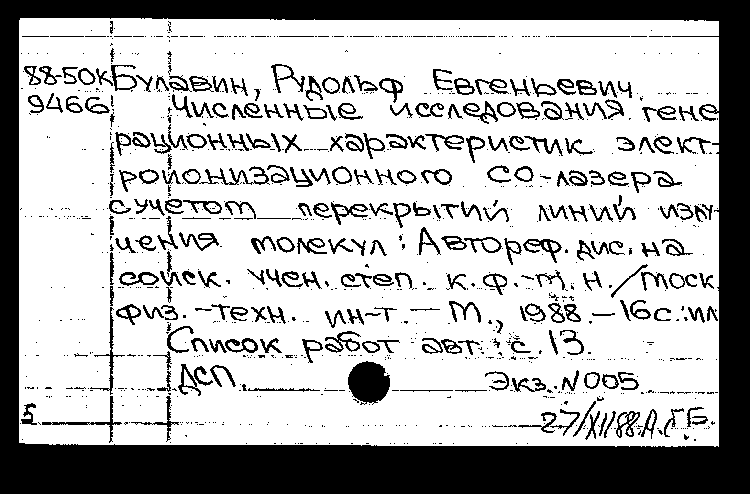 88-50К Булавин, Рудольф Евгеньевич.
9466 Численные исследования гене
рационных характеристик элект-
роионизационного СО-лазера
с учетом перекрытий линий излу-
чения молекул : Автореф. дис. на
соиск. учен. степ. к. ф.-т. н. / Моск.
физ.-техн. ин-т. — М., 1988. — 16 с.: ил
Список работ авт.: с. 13.
ДСП. Экз. N 005
5 27/XII 88. А.С. Г.Б.